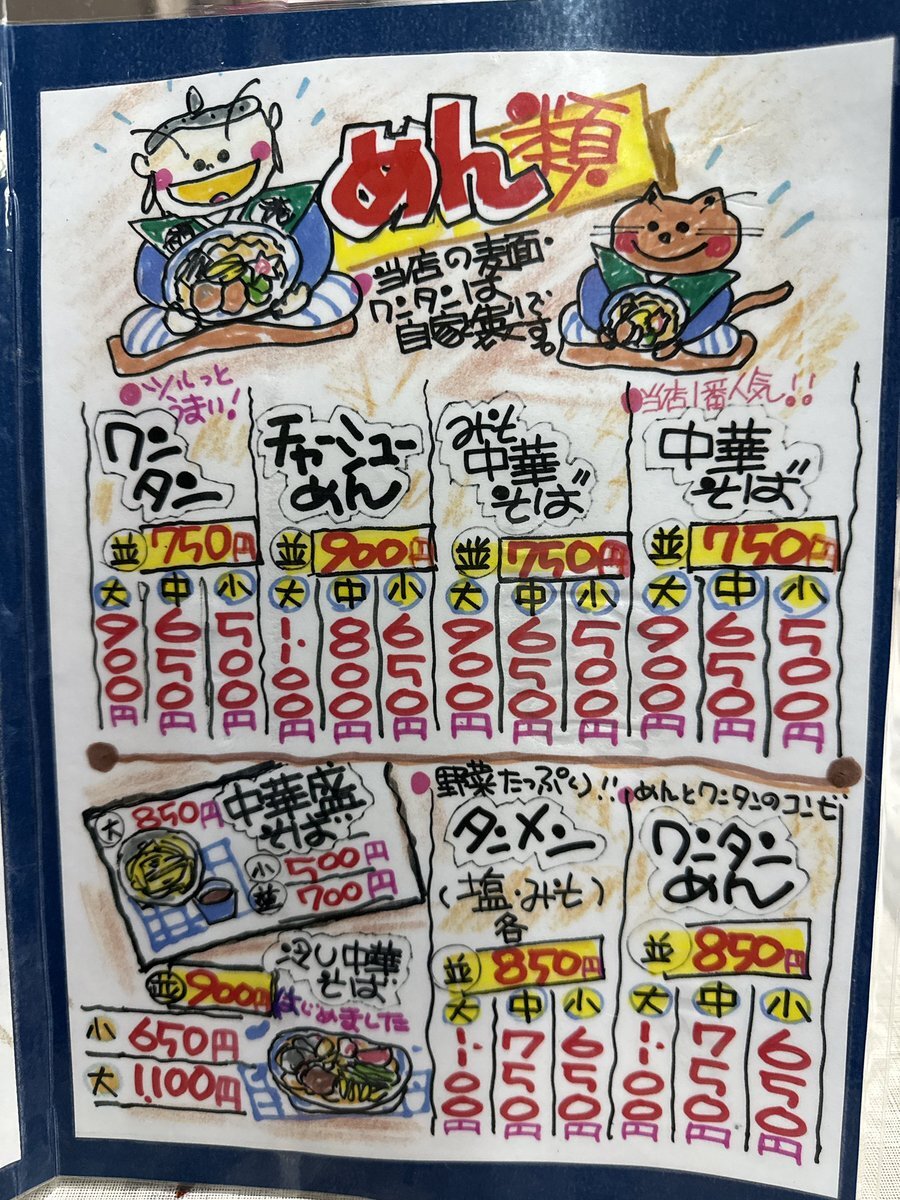 めん類
当店の麺・
ワンタンは
自家製です。
当店1番人気!!
中華
そば
並 750円
大 900円
中 650円
小 500円
みそ
中華
そば
並 750円
大 900円
中 650円
小 500円
チャーシュー
めん
並 900円
大 1.100円
中 800円
小 650円
ツルっと
うまい!
ワン
タン
並 750円
大 900円
中 650円
小 500円
めんとワンタンのコンビ
ワンタン
めん
並 850円
大 1.100円
中 750円
小 650円
野菜たっぷり!!
タンメン
(塩・みそ)
各
並 850円
大 1.100円
中 750円
小 650円
中華盛
そば
大 850円
小 500円
並 700円
冷し中華
そば
はじめました
並 900円
小 650円
大 1.100円